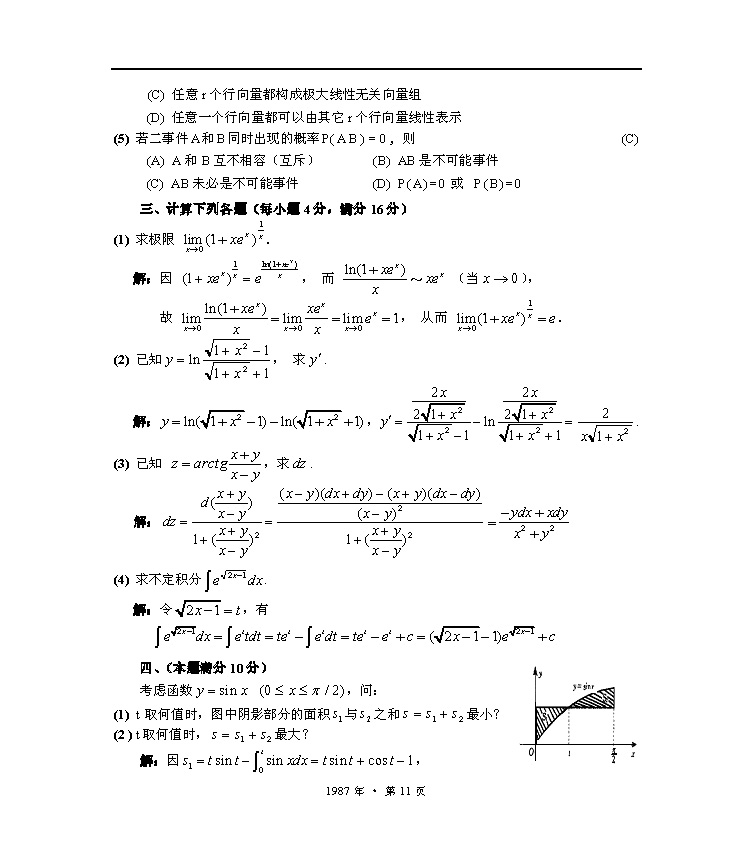 (C) 任意 r 个行向量都构成极大线性无关向量组
(D) 任意一个行向量都可以由其它 r 个行向量线性表示
(5) 若二事件 A 和 B 同时出现的概率 P( A B ) = 0 , 则 (C)
(A) A 和 B 互不相容（互斥） (B) AB 是不可能事件
(C) AB 未必是不可能事件 (D) P(A)=0 或 P(B)=0
三、计算下列各题（每小题 4 分，满分 16 分）
(1) 求极限 $\lim_{x\to 0}(1+xe^x)^{\frac{1}{x}}$.
解：因 $(1+xe^x)^{\frac{1}{x}}=e^{\frac{\ln(1+xe^x)}{x}}$， 而 $\frac{\ln(1+xe^x)}{x}\sim xe^x$ （当 $x\to 0$），
故 $\lim_{x\to 0}\frac{\ln(1+xe^x)}{x}=\lim_{x\to 0}\frac{xe^x}{x}=\lim_{x\to 0}e^x=1$， 从而 $\lim_{x\to 0}(1+xe^x)^{\frac{1}{x}}=e$.
(2) 已知 $y=\ln\frac{\sqrt{1+x^2}-1}{\sqrt{1+x^2}+1}$， 求 $y'$.
解：$y=\ln(\sqrt{1+x^2}-1)-\ln(\sqrt{1+x^2}+1)$，$y'=\frac{\frac{2x}{2\sqrt{1+x^2}}}{\sqrt{1+x^2}-1}-\ln\frac{\frac{2x}{2\sqrt{1+x^2}}}{\sqrt{1+x^2}+1}=\frac{2}{x\sqrt{1+x^2}}$.
(3) 已知 $z=arctg\frac{x+y}{x-y}$，求 $dz$.
解：$dz=\frac{d(\frac{x+y}{x-y})}{1+(\frac{x+y}{x-y})^2}=\frac{\frac{(x-y)(dx+dy)-(x+y)(dx-dy)}{(x-y)^2}}{1+(\frac{x+y}{x-y})^2}=\frac{-ydx+xdy}{x^2+y^2}$
(4) 求不定积分 $\int e^{\sqrt{2x-1}}dx$.
解：令 $\sqrt{2x-1}=t$，有
$\int e^{\sqrt{2x-1}}dx=\int e^t tdt=te^t-\int e^t dt=te^t-e^t+c=(\sqrt{2x-1}-1)e^{\sqrt{2x-1}}+c$
四、（本题满分 10 分）
考虑函数 $y=\sin x$ $(0\le x\le \pi/2)$，问：
(1) t 取何值时，图中阴影部分的面积 $s_1$ 与 $s_2$ 之和 $s=s_1+s_2$ 最小？
(2 ) t 取何值时， $s=s_1+s_2$ 最大？
解：因 $s_1=t\sin t-\int_0^t\sin xdx=t\sin t+\cos t-1$，
y
y=sin x
0 t $\frac{\pi}{2}$ x
1987 年 · 第 11 页